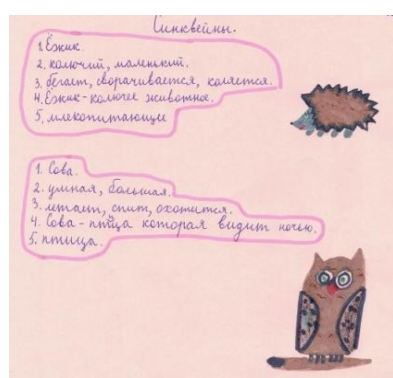 Синквейны.
1. Ёжик.
2. колючий, маленький.
3. бегает, сворачивается, колется.
4. Ёжик - колючее животное.
5. млекопитающие
1. Сова.
2. умная, большая.
3. летает, спит, охотится.
4. Сова - птица которая видит ночью.
5. птица.